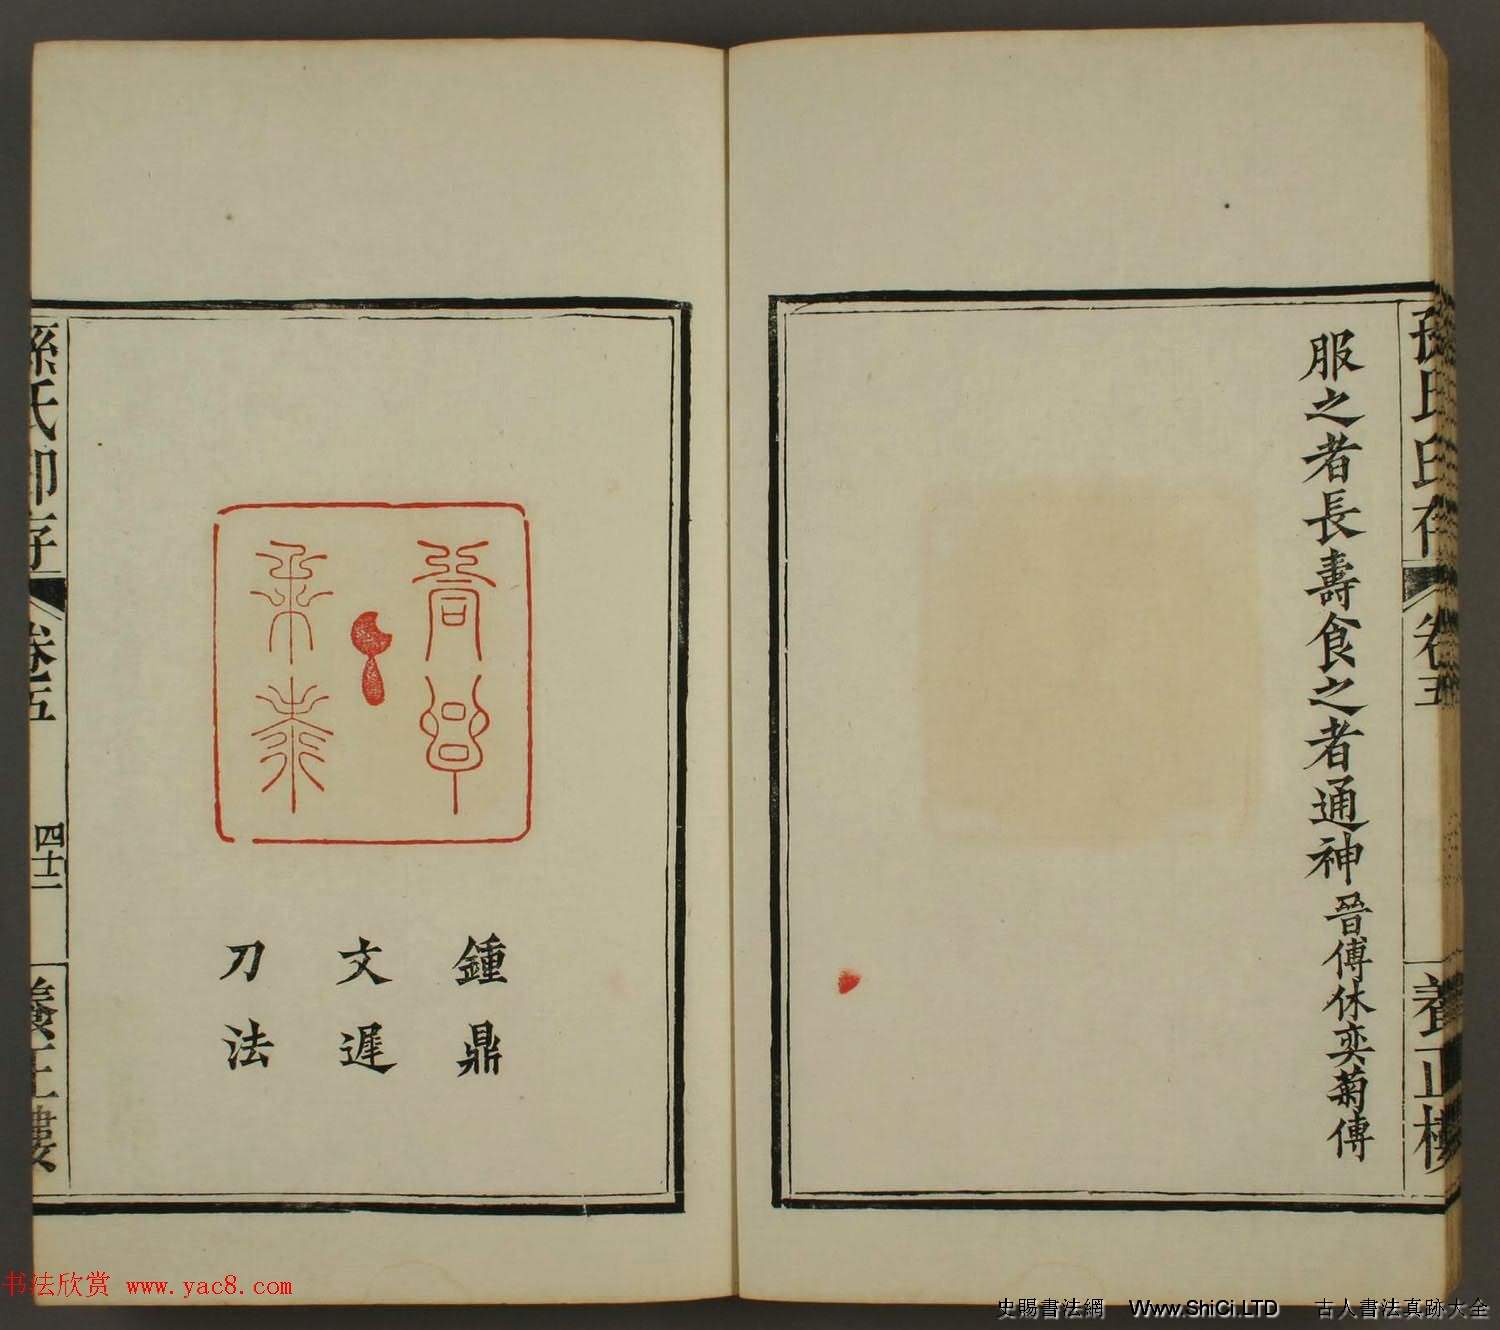 孫氏印存
卷五
養正樓
服之者長壽食之者通神晉傅休奕菊傳
鍾鼎
文遲
刀法
孫氏印存
卷五
四十二
養正樓
书法欣赏 www.yac8.com
史賜書法網 Www.ShiCi.LTD 古人書法真跡大全